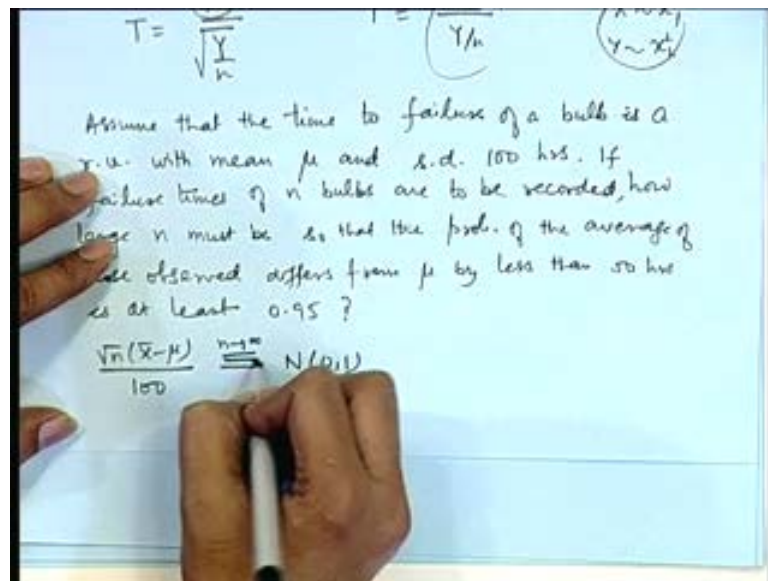 T = √Y/n T = Y/n Y ~ χ²
Assume that the time to failure of a bulb is a
r.v. with mean μ and s.d. 100 hrs. If
failure times of n bulbs are to be recorded, how
large n must be so that the prob. of the average of
observed differs from μ by less than 50 hrs
is at least 0.95 ?
√n(x̄-μ)/100 n→∞ N(0,1)